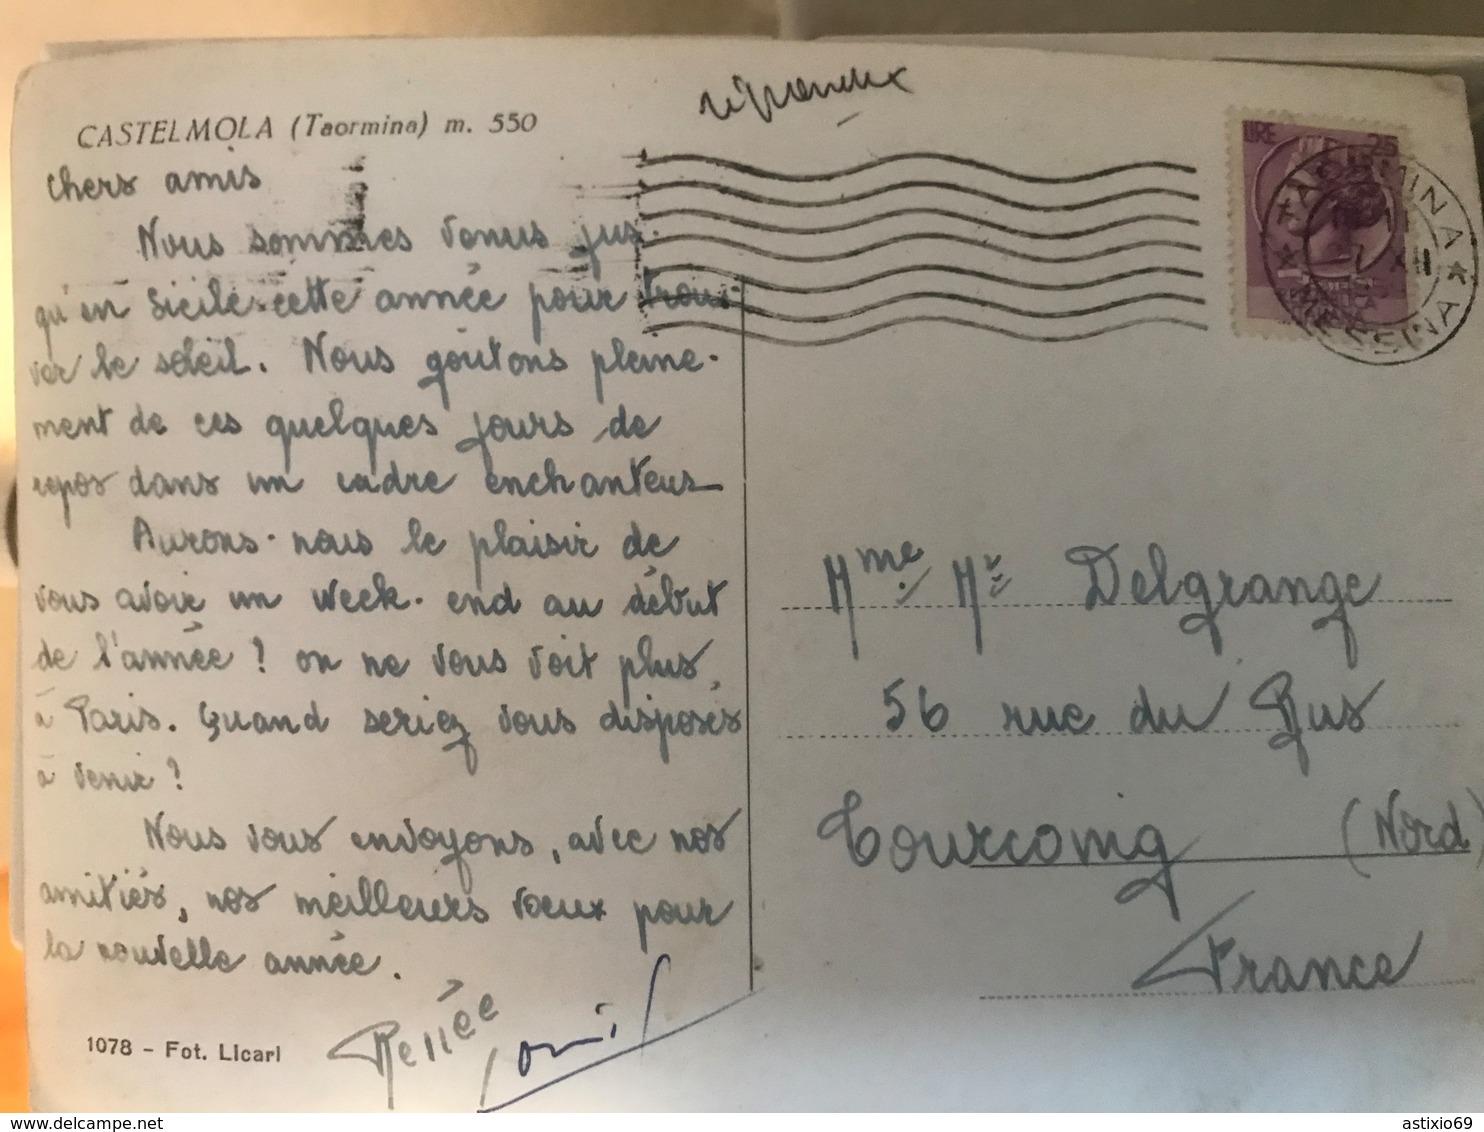 CASTELMOLA (Taormina) m. 550
chers amis
Nous sommes venus jus-
qu'en Sicile cette année pour trou-
ver le soleil. Nous goûtons pleine-
ment de ces quelques jours de
repos dans un cadre enchanteur
Aurons-nous le plaisir de
vous avoir un week-end au début
de l'année ? on ne vous voit plus
à Paris. Quand seriez vous disposés
à venir ?
Nous vous envoyons, avec nos
amitiés, nos meilleurs voeux pour
la nouvelle année.
Renée
Louis
1078 - Fot. Licari
LIRE 25
TAORMINA
MESSINA
Mme Mr Delgrange
56 rue du Pus
Tourcoing (Nord)
France
astixio69